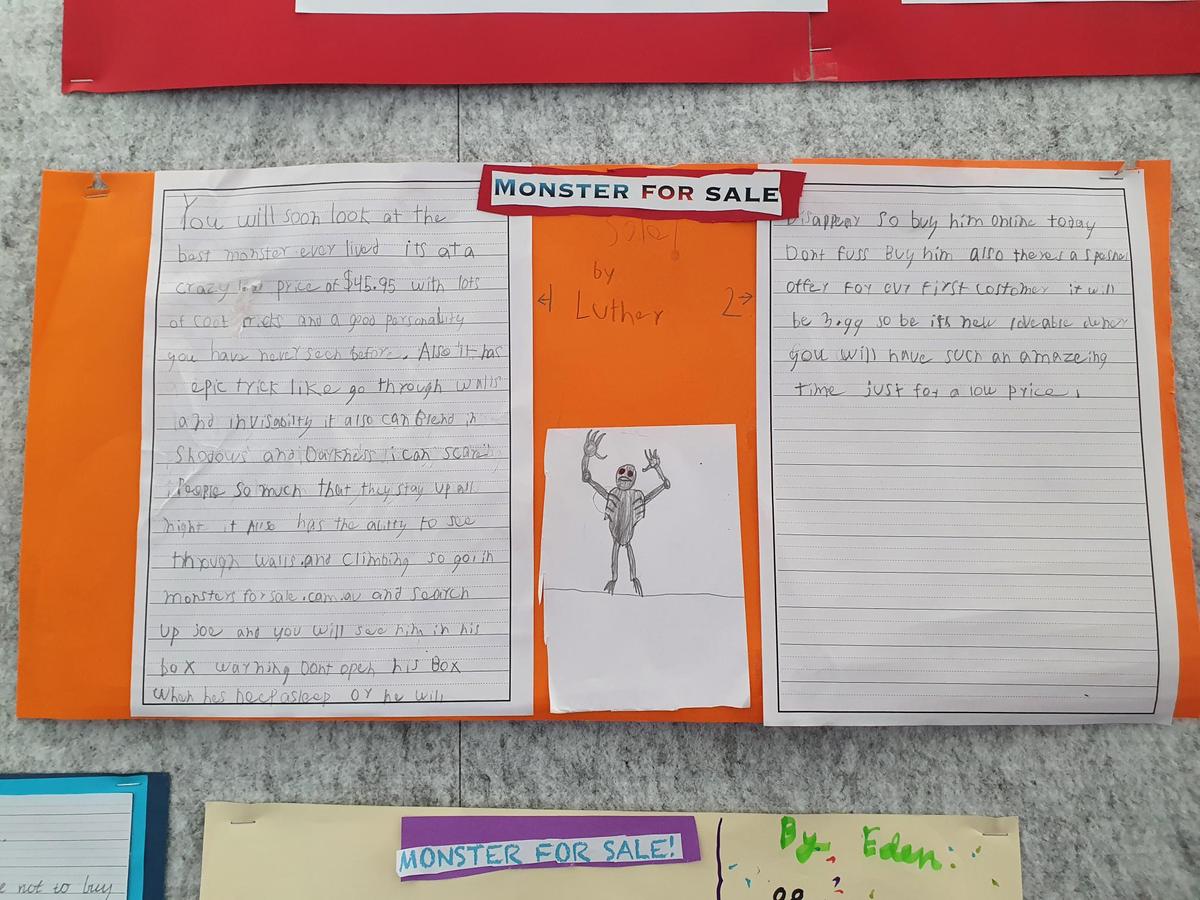 MONSTER FOR SALE
Sale!
by
Luther
2
You will soon look at the
best monster ever lived its at a
crazy low price of $45.95 with lots
of and a good personality
you have never seen before. Also it has
epic trick like go through walls
and invisabilty it also can Blend in
Shadows and Darkness i can scare
People so much that they stay up all
night it Also has the abilty to see
through walls and Climbing so go in
monstersforsale.com.au and search
up joe and you will see him in his
box warning Dont open his Box
When hes asleep or he will
Disappear so buy him online today
Dont fuss Buy him also theres a
offer For our First costomer it will
be so be its new loveable owner
you will have such an amazeing
time just for a low price.
MONSTER FOR SALE!
By Eden
e not to buy